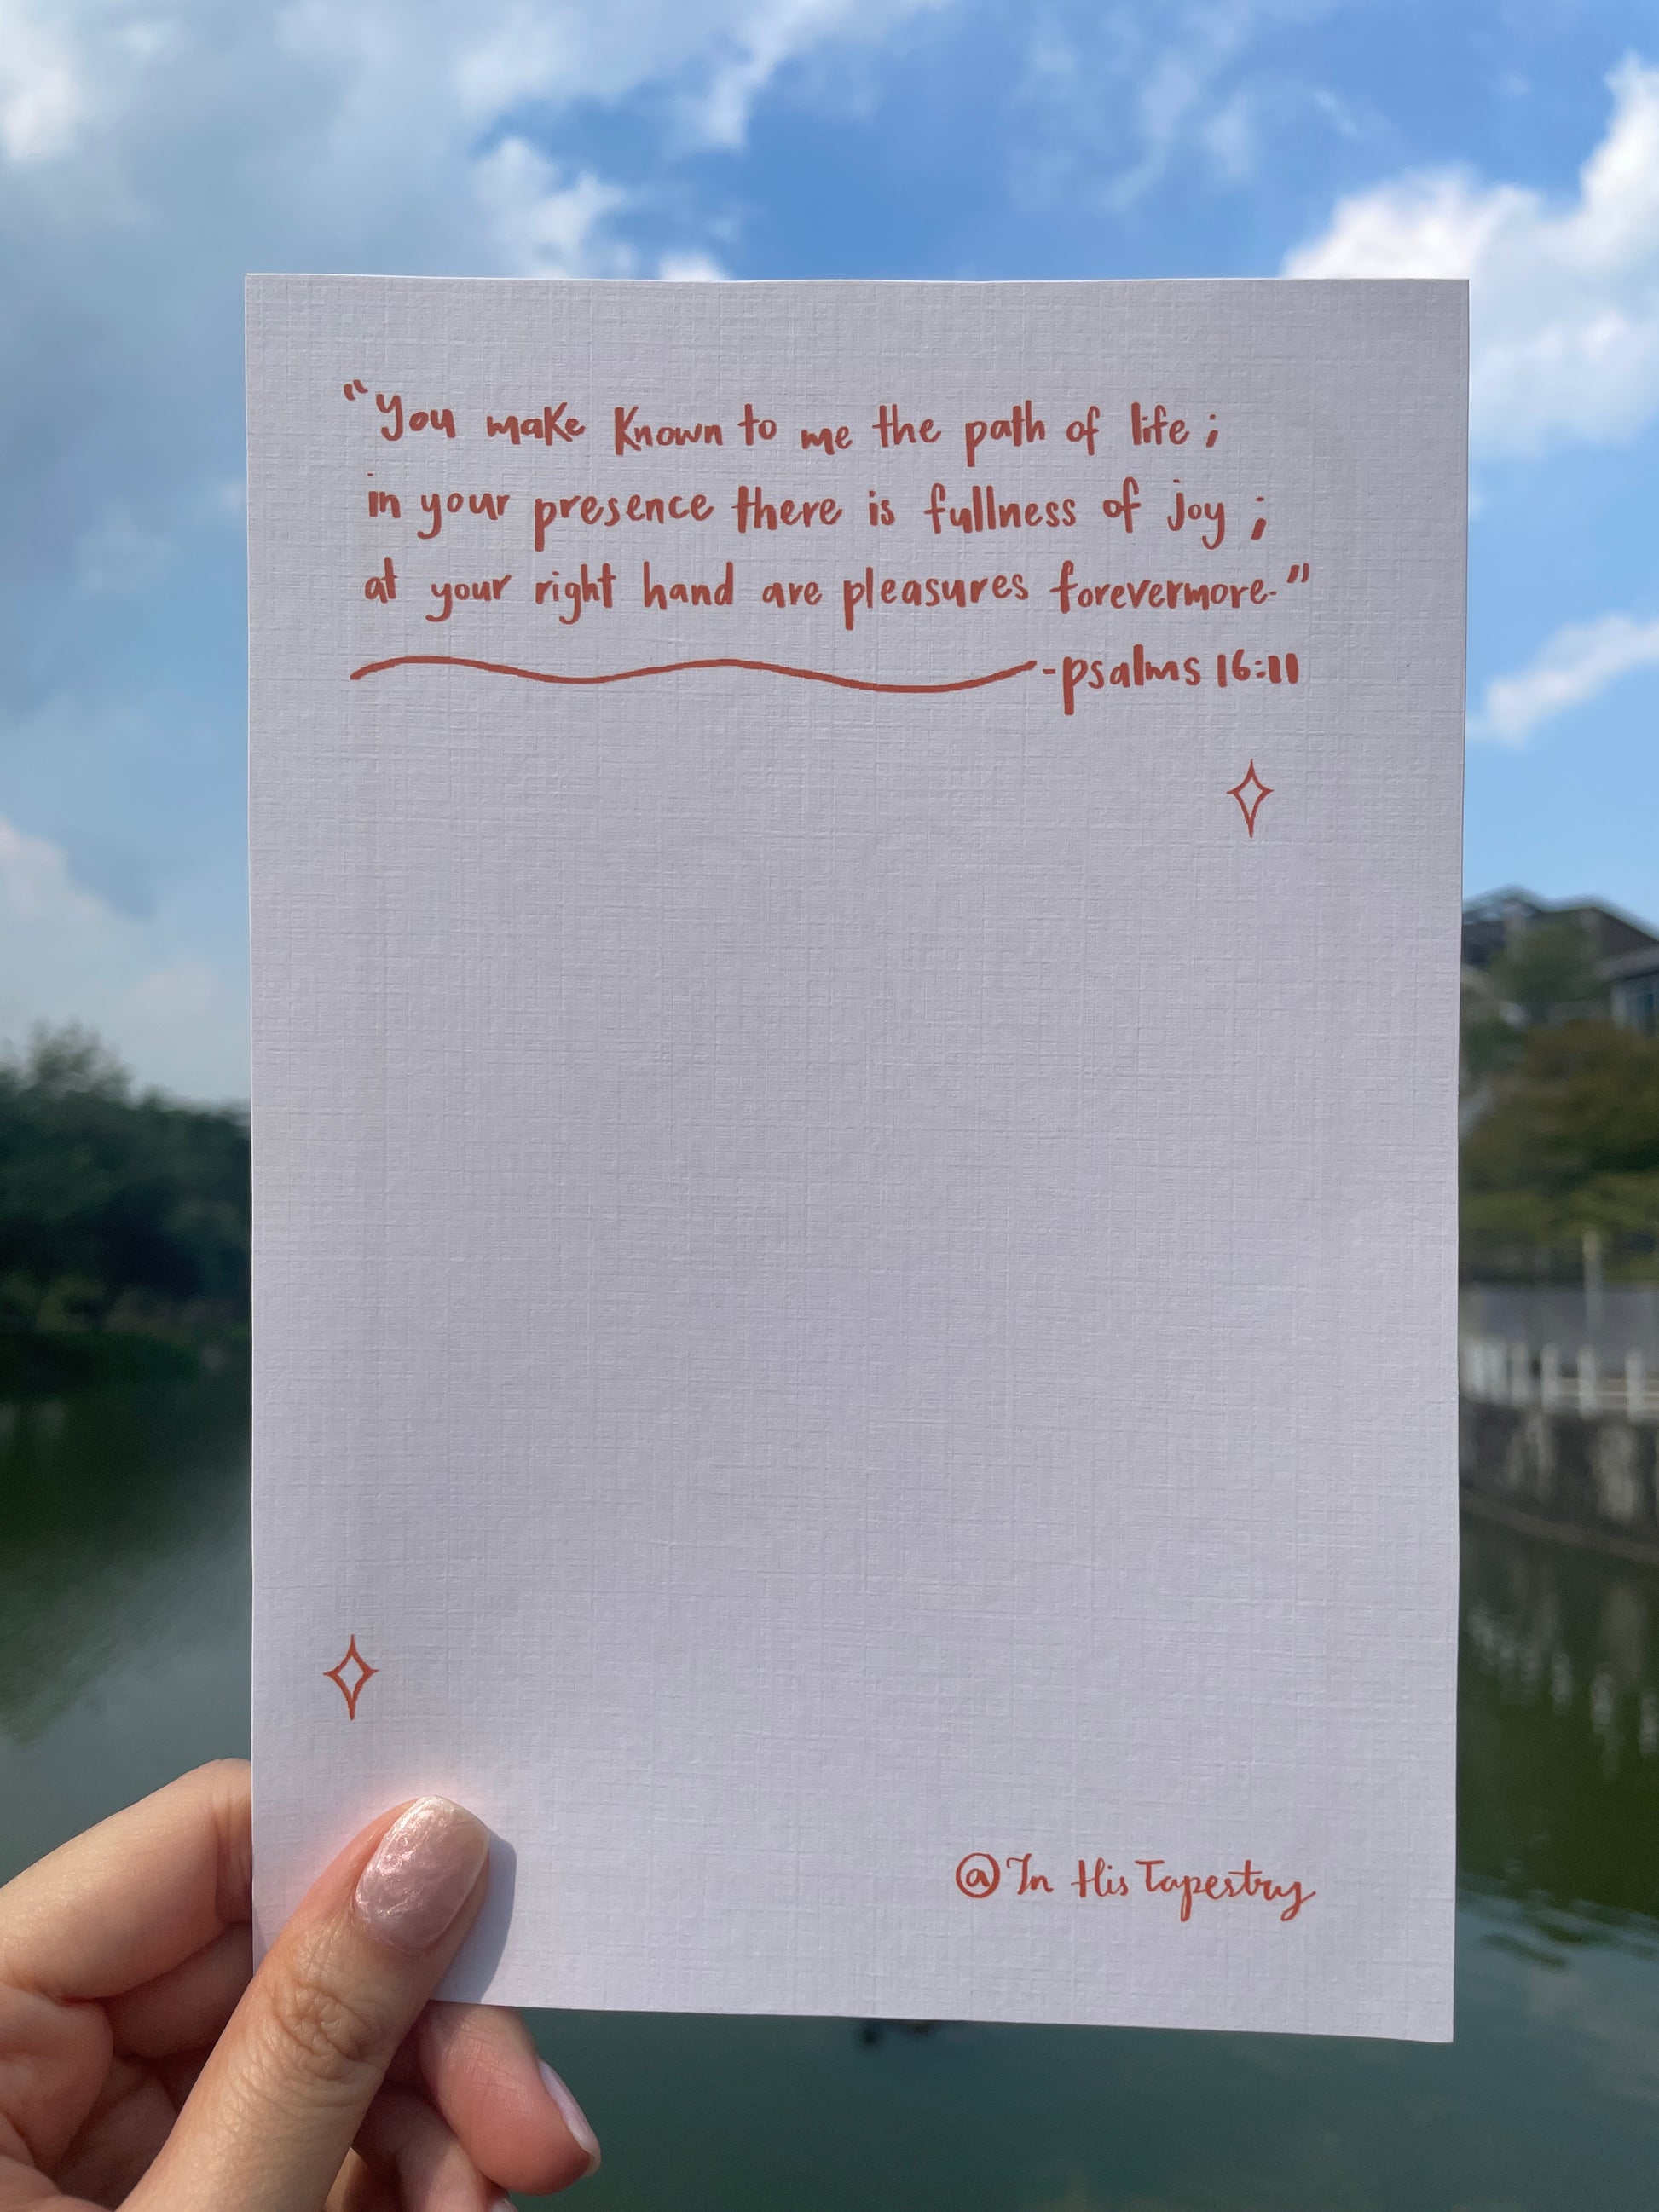 “You make known to me the path of life;
in your presence there is fullness of joy;
at your right hand are pleasures forevermore.”
-psalms 16:11
@In His Tapestry